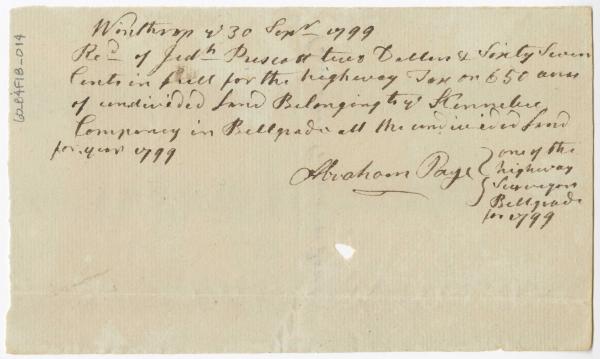 Winthrop ye 30 Sepr 1799
Recd of Jedh Prescott two Dollers & Sixty Seven
Cents in full for the highway Tax on 650 acres
of undivided Land Belonging to ye Kennebec
Company in Bellgrade all the undivided Land
for year 1799
Abraham Page } one of the
highway
Surveyors
Bellgrade
for 1799
62E4F1B-014